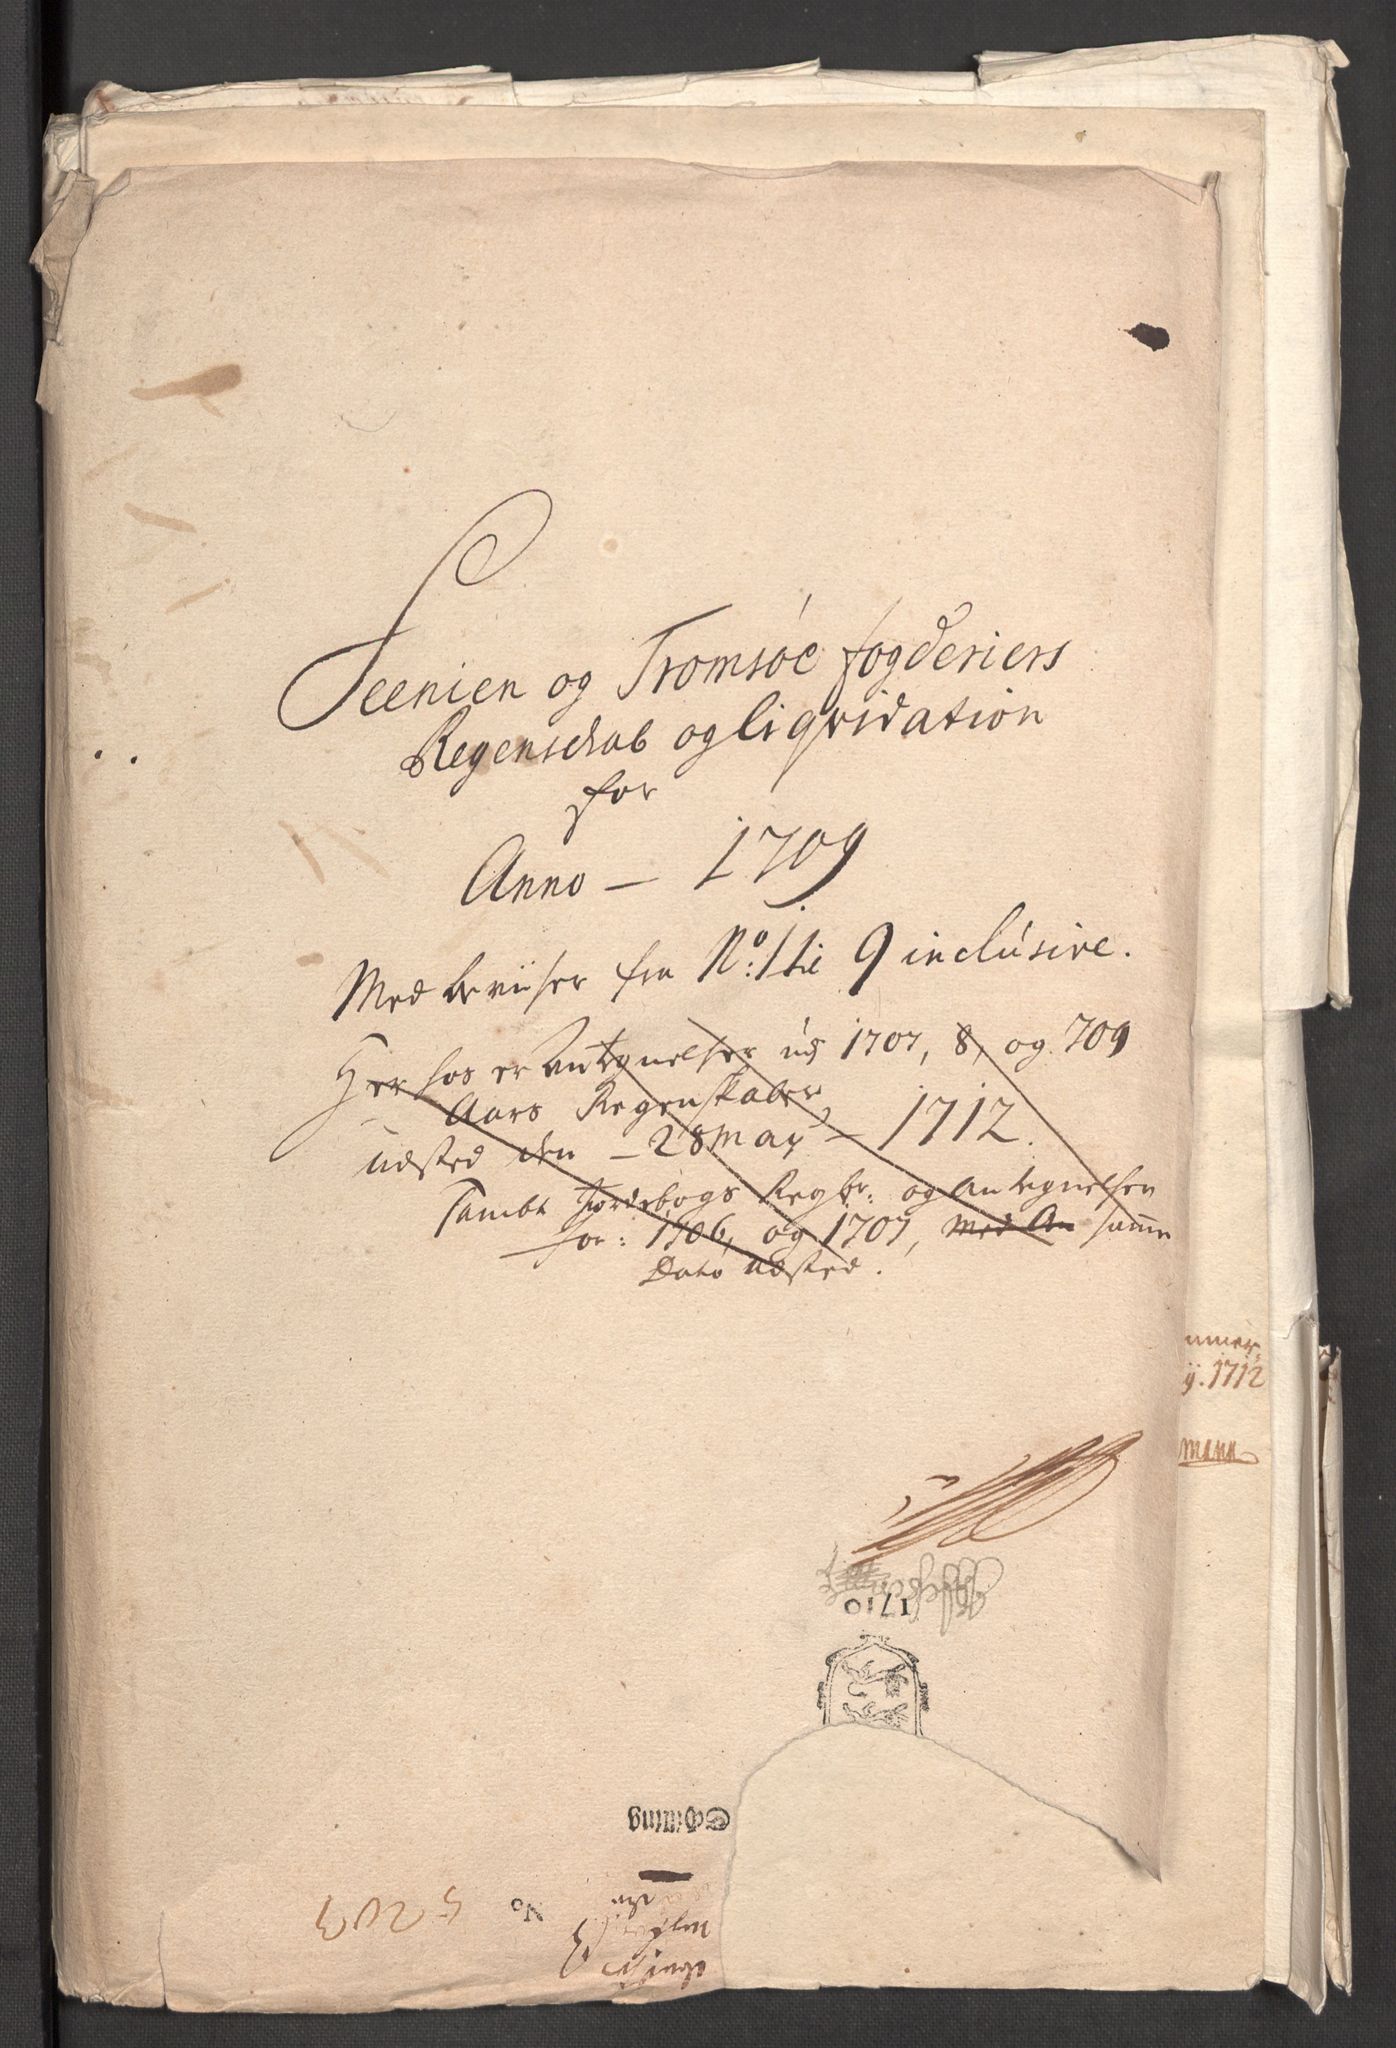 Seenien og Tromsøe fogderiers
Regenschab og liqvidation
for
Anno – 1709
Med beviiser fra No: 1 til 9 inclúsive.
Herhos er Antegnelser úd 1707, 8, og 709
Aars Regenskaber,
Udsted den – 28 May – 1712.
Sambt Jordebogs Regbr: og Antegnelser
for: 1706, og 1707, med An samme
Dato udsted.
ij. 1712
mann
1710
Schilling
No 5203